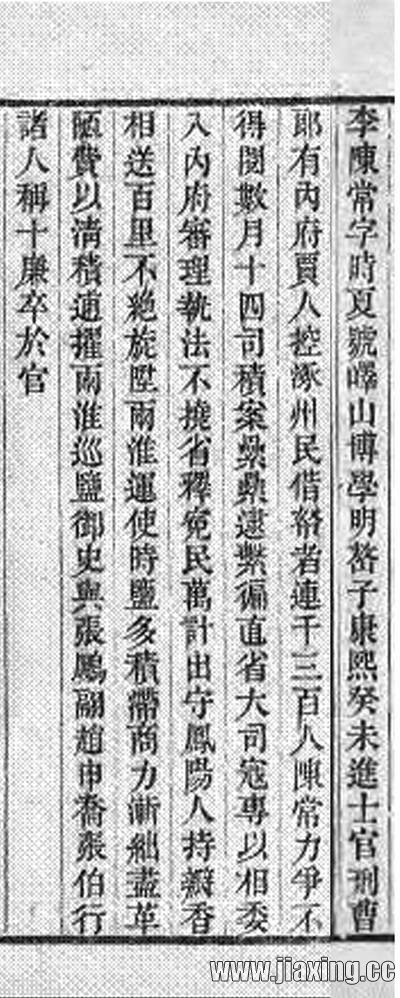 李陳常字時夏號嶧山博學明嶅子康熙癸未進士官刑曹
郎有內府賈人控涿州民借帑者連干三百人陳常力爭不
得閱數月十四司積案纍纍逮繫徧直省大司寇專以相委
入內府審理執法不撓省釋冤民萬計出守鳳陽人持瓣香
相送百里不絕旋陞兩淮運使時鹽多積滯商力漸絀盡革
陋費以清積逋擢兩淮巡鹽御史與張鵬翮趙申喬張伯行
諸人稱十廉卒於官
www.jiaxing.cc